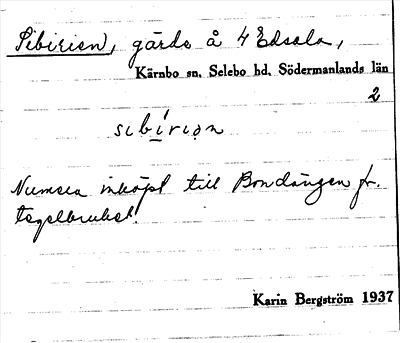 Sibirien, gärde å 4 Edsala,
Kärnbo sn. Selebo hd. Södermanlands län
2
sibirian
Numera inköpt till Bondängen fr.
tegelbruket!
Karin Bergström 1937